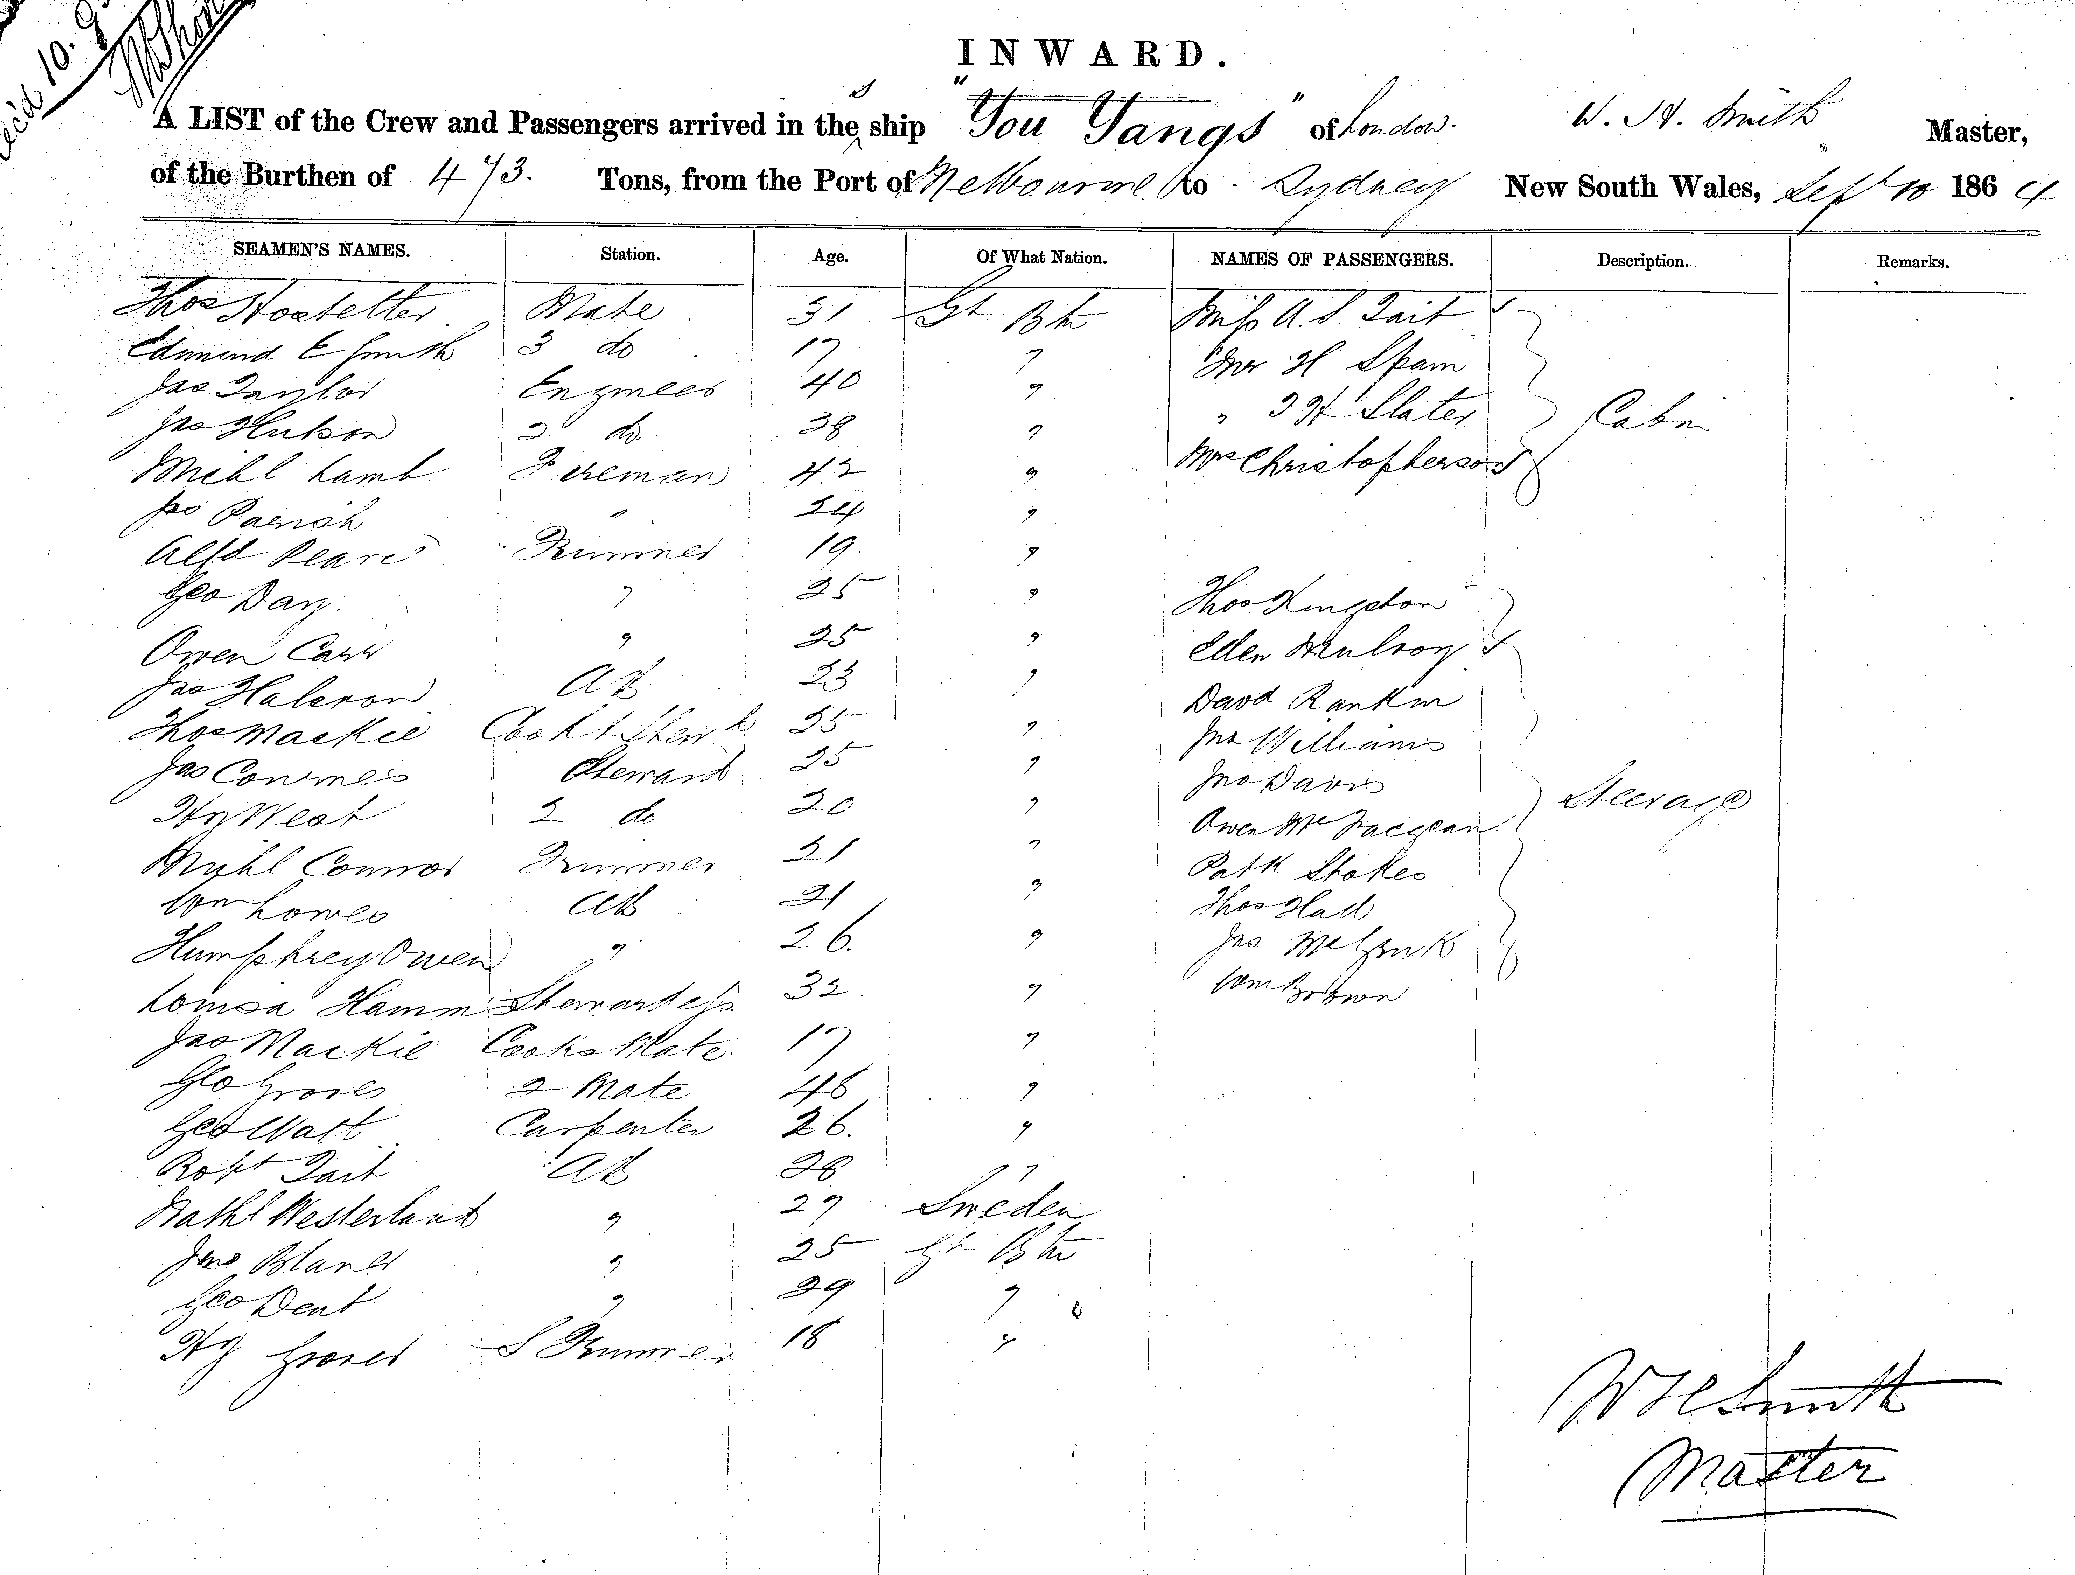 rec'd 10.9
INWARD.
s
A LIST of the Crew and Passengers arrived in the ship "You Yangs" of London. W. H. Smith Master,
of the Burthen of 473. Tons, from the Port of Melbourne to Sydney New South Wales, Sept 10 1864
SEAMEN'S NAMES. Station. Age. Of What Nation. NAMES OF PASSENGERS. Description. Remarks.
Thos Hostetter Mate 31 Gt Btn Miss A. S. Tait
Edmund E Smith 3 do 17 " Mr H Spain
Jas Taylor Engineer 40 " " J H Slater Cabin
Jno Hutson 2 do 38 " Mrs Christopherson
Michl Lamb Fireman 42 "
Jas Parrish " 24 "
Alfd Pearce Trimmer 19 "
Geo Day " 25 " Thos Kingston
Owen Carr " 25 " Ellen Mulroy
Jno Halcron AB 23 " Davd Rankin
Thos Mackie Cook & Stewd 25 " Jno Williams
Jas Conmee Steward 25 " Jno Davis
Hy West 2 do 20 " Owen Mc Steerage
Michl Connor Trimmer 21 " Patk Stokes
Wm Lowes AB 21 " Thos Hall
Humphrey Owen " 26. " Jas
Louisa Hamm Stewardess 32 " Wm Brown
Jno Mackie Cooks Mate 17 "
Geo Groves 2 Mate 46 "
Geo Watt Carpenter 26. "
Robt Tait AB 28 " "
Nathl Westerland " 27 Sweden
Jno Blanes " 25 Gt Btn
Geo Dent " 29 "
Hy Groves S Trimmer 18 "
W H Smith
Master